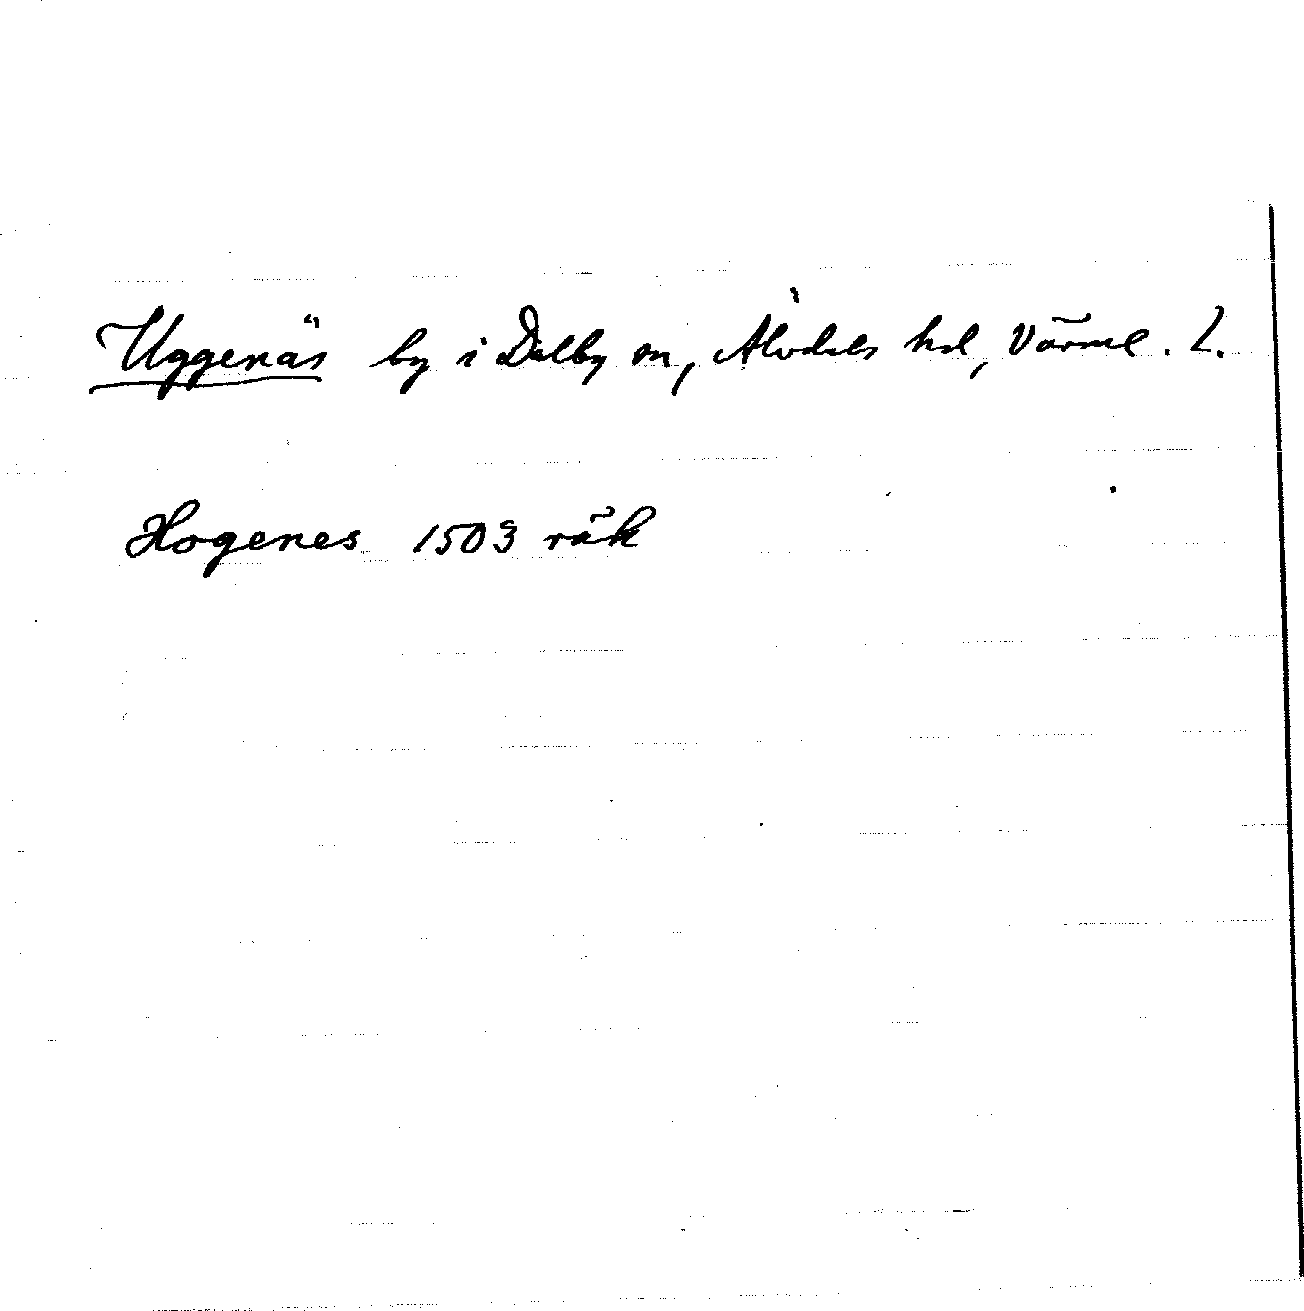 Uggenäs by i Dalby sn, Älvdals hd, Värml. L.
Hogenes 1503 räk